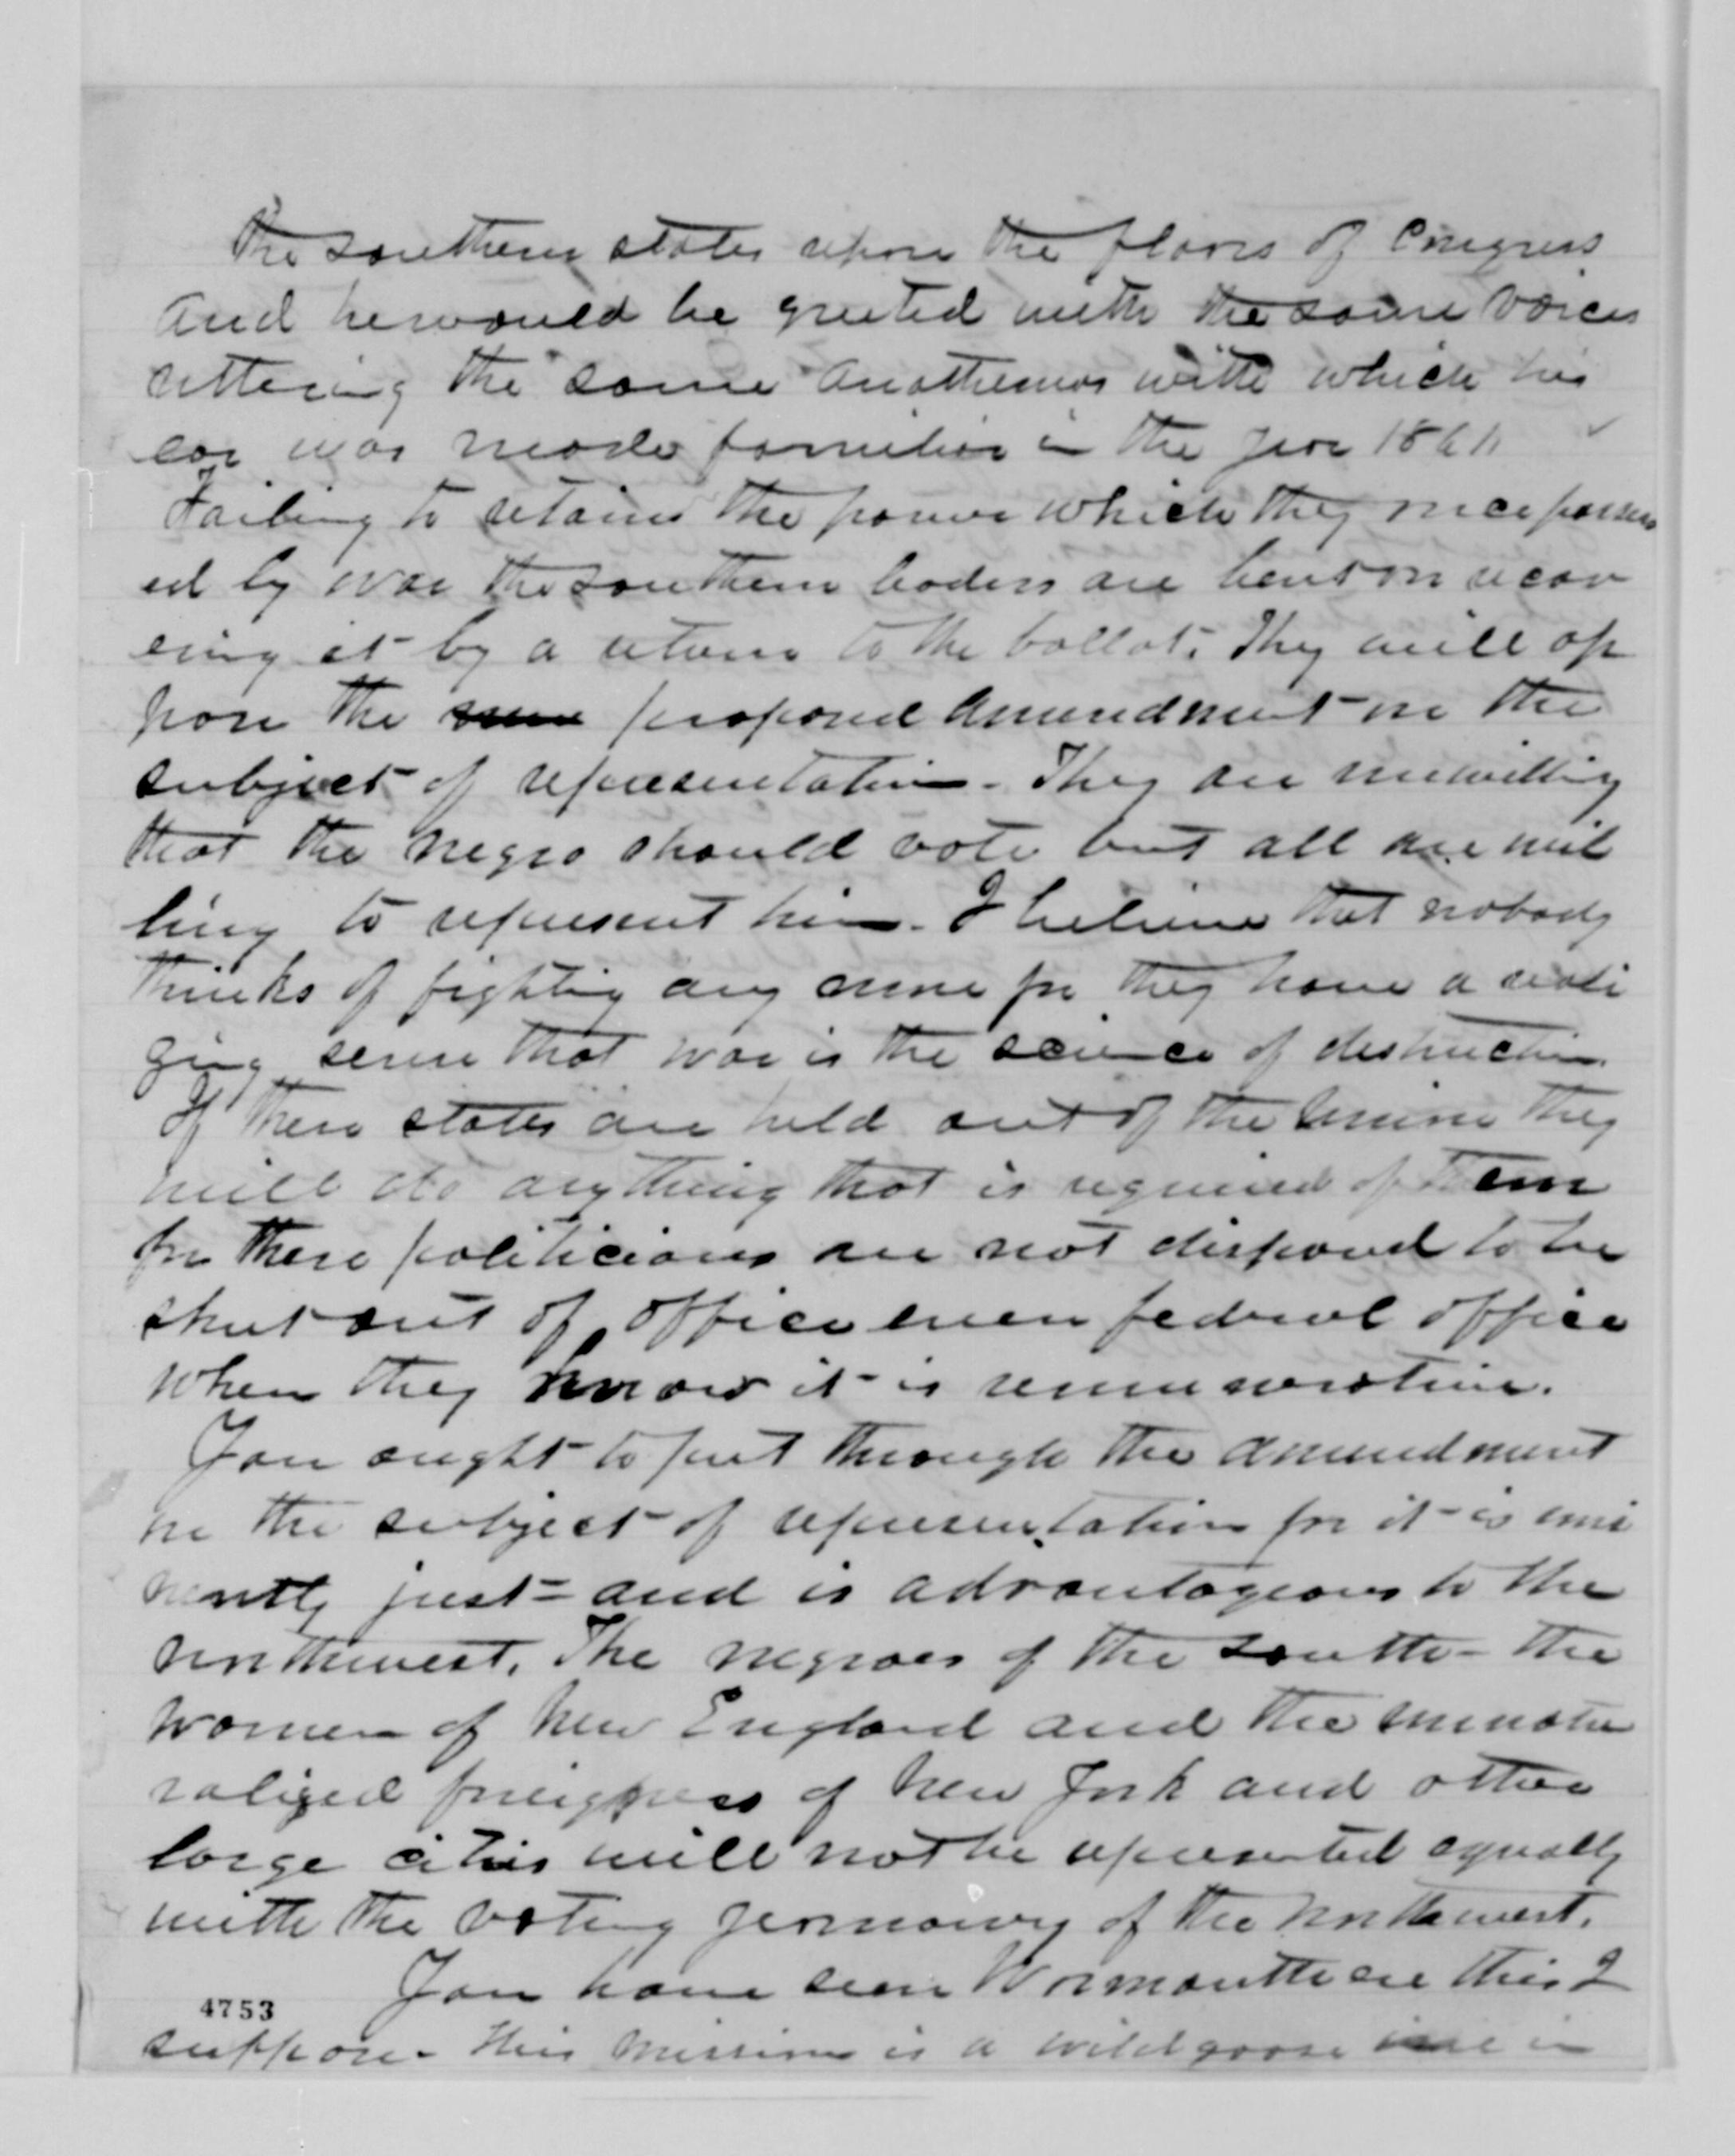 The southern states upon the floors of Congress
and he would be greeted with the same voices
uttering the same anathemas with which his
ear was made familiar in the year 1861
Failing to retain the power which they once possess
ed by war the southern leaders are bent on recov
ering it by a return to the ballot. They will op
pose the proposed amendment on the
subject of representation - They are unwilling
that the negro should vote but all are wil
ling to represent him - I believe that nobody
thinks of fighting any more for they have a reali
zing sense that war is the science of destruction.
If these states are held out of the Union they
will do anything that is required of them
for these politicians are not disposed to be
shut out of office even federal office
when they know it is remunerative.
You ought to put through the amendment
on the subject of representation for it is emi
nently just - and is advantageous to the
northwest. The negroes of the south - the
women of New England and the unnatu
ralized foreigners of New York and other
large cities will not be represented equally
with the voting yeomanry of the northwest.
You have seen Warmouth ere this I
4753
suppose - His mission is a wild goose one in